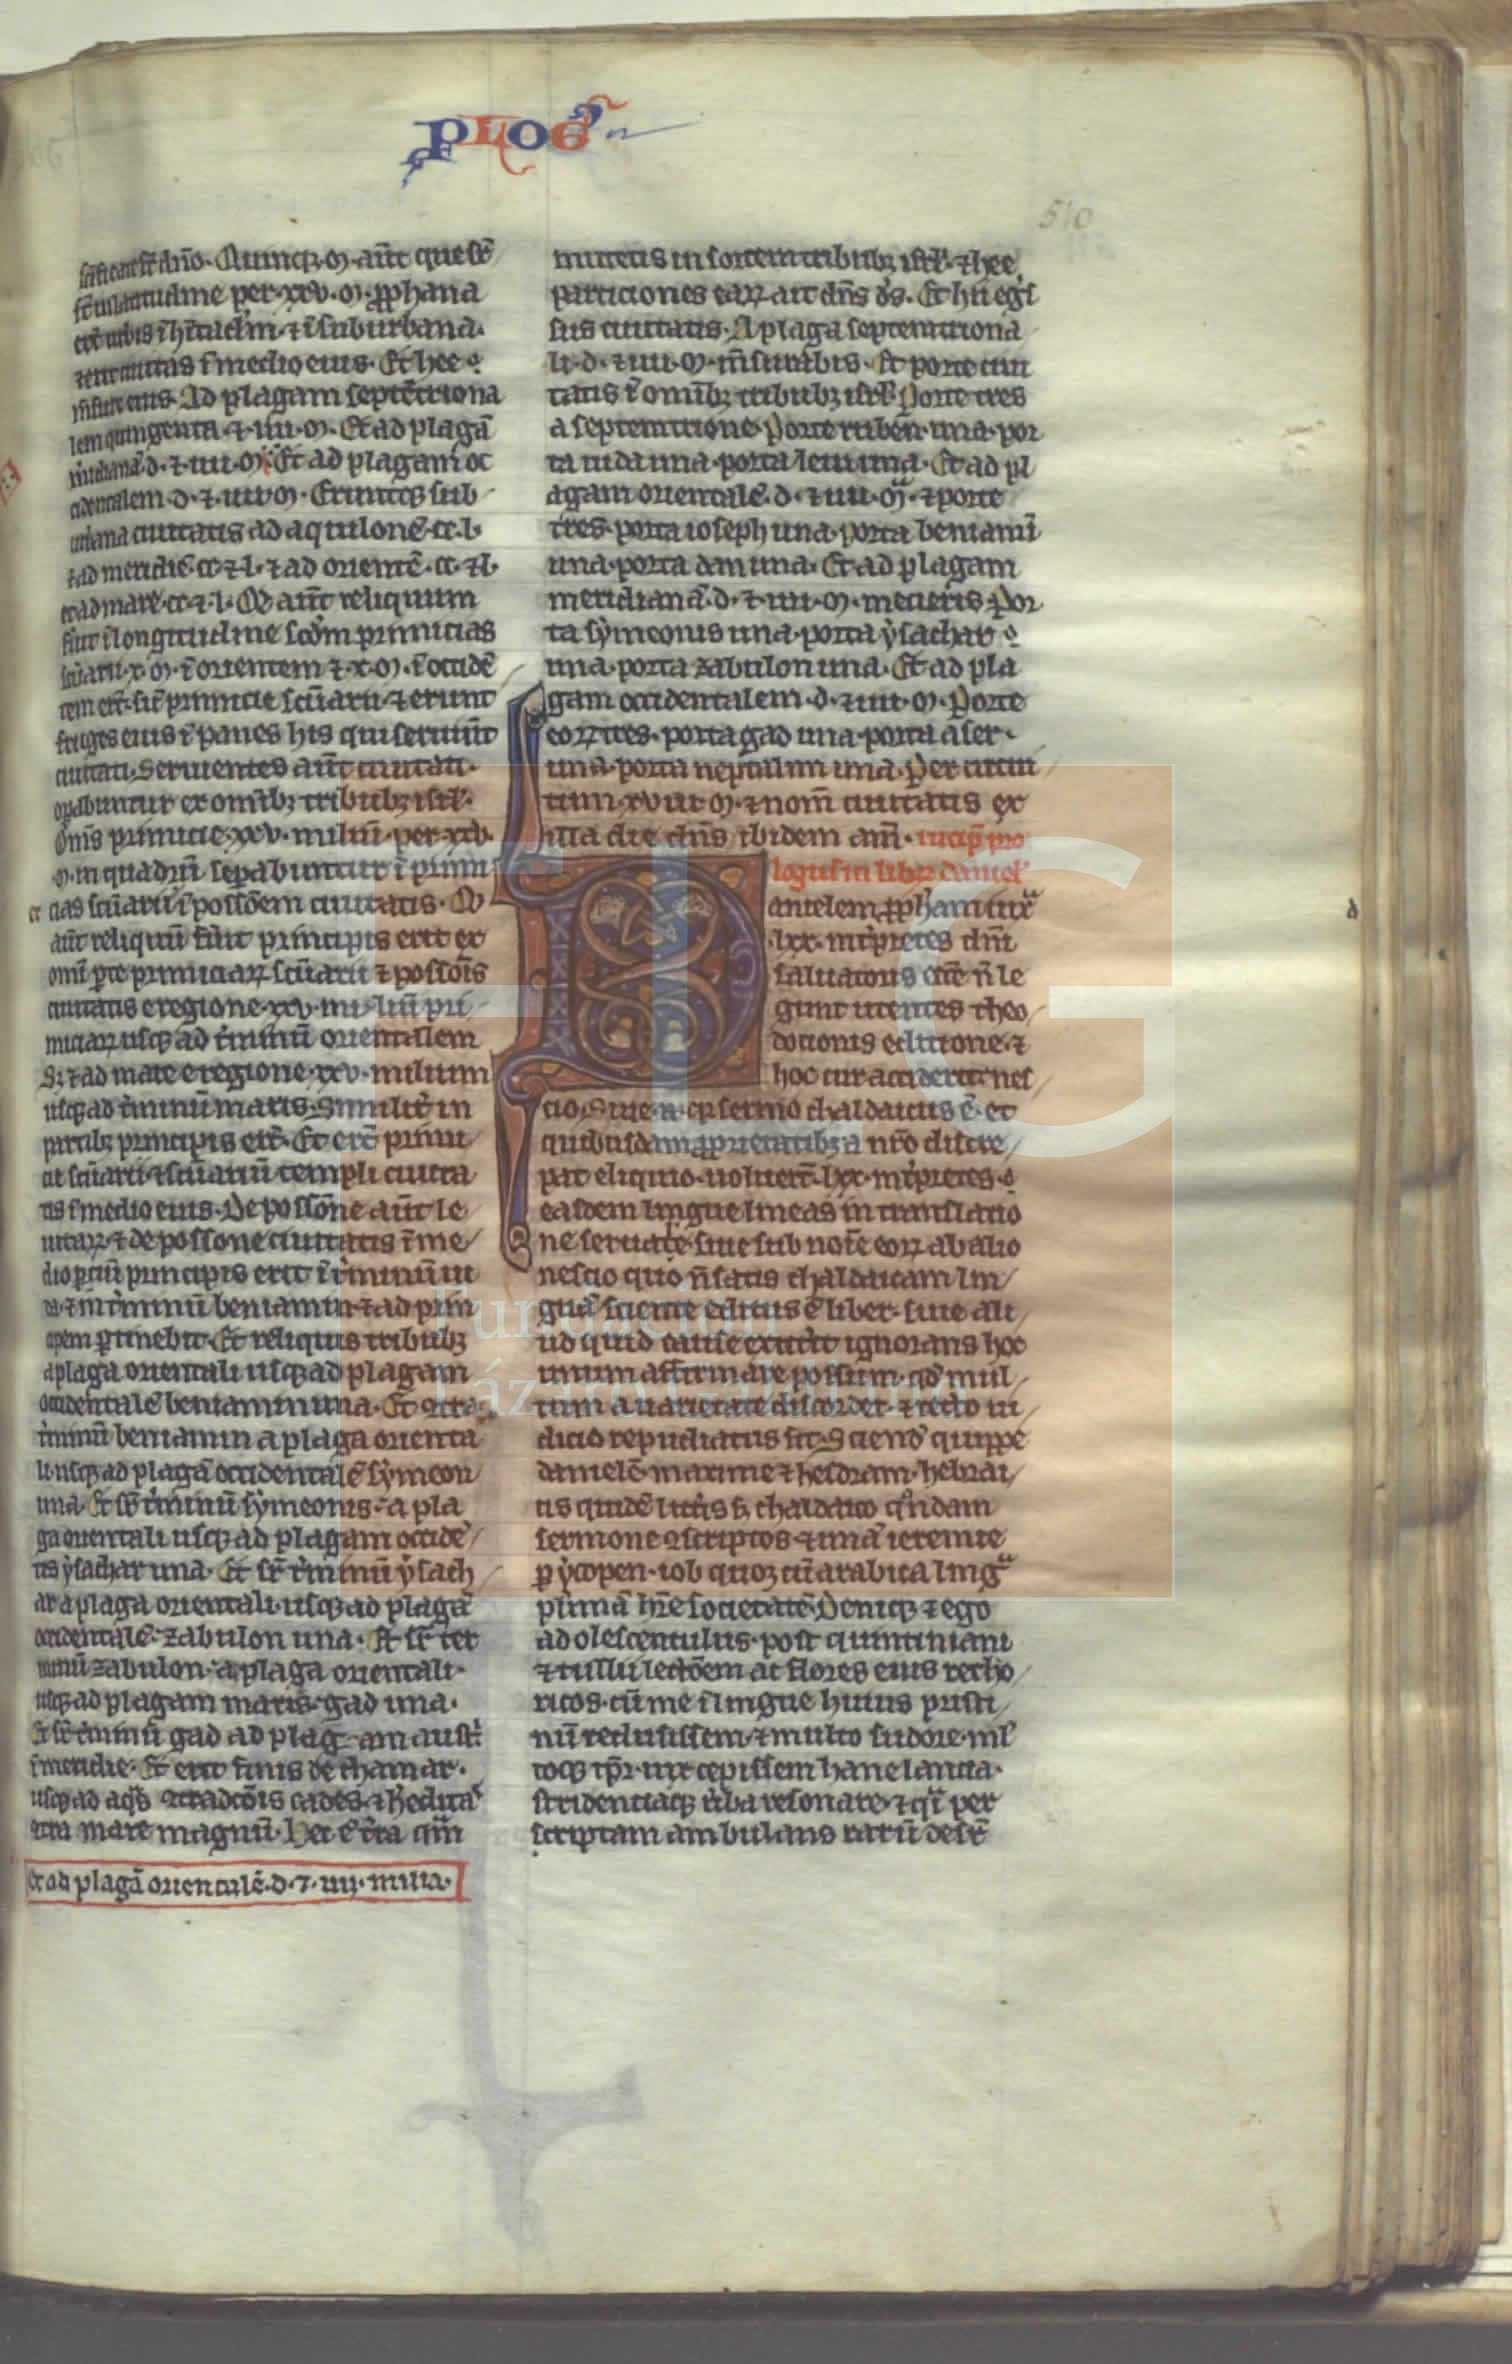 PLOG̃
510
sc̃ificatũ ẽ dño. Quinq; ꝳ. aũt que sr̃
sr̃t in latitudine per. xxv. ꝳ. ꝓphana
erũt urbis ĩ h̃itac̃lm. ⁊ ĩ suburbana.
⁊ erit ciuitas ĩ medio eius. Et hee
m̃sure eius. Ad plagam septẽtriona
lem quingenta. ⁊. iiii. ꝳ. Et ad plagã
m̃idianã d. ⁊. iiii. ꝳ. Et ad plagam oc
cidentalem. d. ⁊. iiii. ꝳ. Erunt q; sub
urbana ciuitatis ad aquilonẽ. cc. l.
⁊ ad meridiẽ. cc ⁊ l. ⁊ ad orientẽ. cc. ⁊ l.
et ad mare. cc. ⁊. l. Qđ aũt reliquum
fũit ĩ longitudine sc̃đm primicias
sc̃uarii. x. ꝳ. ĩ orientem ⁊. x. ꝳ. ĩ occidẽ
tem er̃t. sic̃ primicie sc̃uarii. ⁊ erunt
fruges eius ĩ panes his qui seruiũt
ciuitati. Seruientes aũt ciuitati.
oꝑabuntur ex omĩb; tribub; isrł.
Om̃s primicie. xxv. miliũ. per. xxv.
ꝳ. in quadrũ. seꝑabuntur ĩ primi
cias sc̃uarii ⁊ ĩ possõem ciuitatis. Qđ
aũt reliquũ fũit principis erit ex
omĩ ꝑte primiciaꝝ sc̃uarii ⁊ possõis
ciuitatis e regione. xxv. miliũ pri
miciaꝝ usq; ad t̃minũ orientalem
S; ⁊ ad mare e regione. xxv. milium
usq; ad t̃minũ maris. Similit̃ in
partib; principis er̃t. Et er̃t primi
cie sc̃uarii. ⁊ sc̃uariũ templi ciuita
tis ĩ medio eius. De possõne aũt le
uitaꝝ. ⁊ de possone ciuitatis ĩ me
dio ꝑciũ principis erit ĩ t̃minũ iu
da. ⁊ in t̃minũ beniamin. ⁊ ad prin
cipem ꝑtinebit. Et reliquis tribub;
a plaga orientali usq; ad plagam
occidentalẽ beniamin una. Et ꝯtra
t̃minũ beniamin a plaga orienta
li. usq; ad plagã occidentalẽ sẏmeon
una. Et sr̃ t̃minũ sẏmeonis. a pla
ga orientali usq; ad plagam occidẽ
tis ẏsachar una. Et sr̃ t̃minũ ẏsach
ar a plaga orientali. usq; ad plagã
occidentalẽ. zabulon una. Et sr̃ ter
minũ zabulon. a plaga orientali.
usq; ad plagam maris. gad una.
Et sr̃ t̃minũ gad ad plagam aust̃
ĩ meridie. Et erit finis de thamar.
usq; ad aq̃s ꝯtradcõis cades. ⁊ h̃edita
ꝯtra mare magnũ. Hec ẽ t̃ra quã
Et ad plagã orientalẽ. d. ⁊. iiij. milia.
mittetis in sortem tribub; isrł. ⁊ hee
particiones eaꝝ ait dñs đs. Et hii eg̃s
sus ciuitatis. A plaga septemtriona
li. d. ⁊ iiii. ꝳ. m̃surabis. Et porte ciui
tatis ĩ omĩb; tribub; isrł. Porte tres
a septemtrione. Porte rubẽn una. por
ta iuda una. porta leui una. Et ad pl
agam orientalẽ. d. ⁊ iiii. ꝳ. ⁊ porte
tres. porta ioseph una. porta beniamĩ
una. porta dan una. Et ad plagam
meridianã. d. ⁊ iiii. ꝳ. mecieris. Por
ta sẏmeonis una. porta ẏsachar
una. porta zabulon una. Et ad pla
gam occidentalem. d. ⁊ iiii. ꝳ. Porte
eoꝝ tres. porta gad una. porta aser.
una. porta neptalim una. Per circui
tum. xviii. ꝳ. ⁊ nom̃ ciuitatis ex
illa die dñs ibidem am̃. incip̃ pro
logus in libꝝ daniel̃
Danielem ꝓph̃am iuxͣ
.lxx. int̃pretes dñi
saluatoris ecc̃e ñ le
gunt utentes theo
dotionis editione. ⁊
hoc cur acciderit nes
cio. Siue .n. q̃ sermo chaldaicus ẽ. et
quibusdam ꝓprietatib; a nr̃o discre
pat eliquio. uoluer̃t. lxx. int̃pretes.
easdem lingue lineas in translatio
ne seruare. siue sub noĩe eoꝝ ab alio
nescio quo ñ satis chaldaicam lin
guã sciente editus ẽ liber. siue ali
ud quid cause extit̃it ignorans hoc
unum affirmare possum. qđ mul
tum a uarietate discordet. ⁊ recto iu
dicio repudiatus sit. Sciend̃ quippe
danielẽ maxime ⁊ hesdram. hebrai
cis quidẽ litt̃is s; chaldaico q̃ndam
sermone ꝯscriptos. ⁊ unã ieremie
ꝑẏcopen. iob quoq; cũ arabica lingͣ
plimã h̃re societatẽ. Deniq; ⁊ ego
adolescentulus. post quintiniani
⁊ tullii lectõem ac flores eius retho
ricos. cũ me ĩ lingue huius pristi
nũ reclusissem. ⁊ multo sudore. ml̃
toq; tp̃r. uix cepissem hanelancia.
stridentiaq; ũba resonare. ⁊ qͣi per
scriptam ambulans rarũ desr̃
FLG
Fundación
Lázaro Galdiano